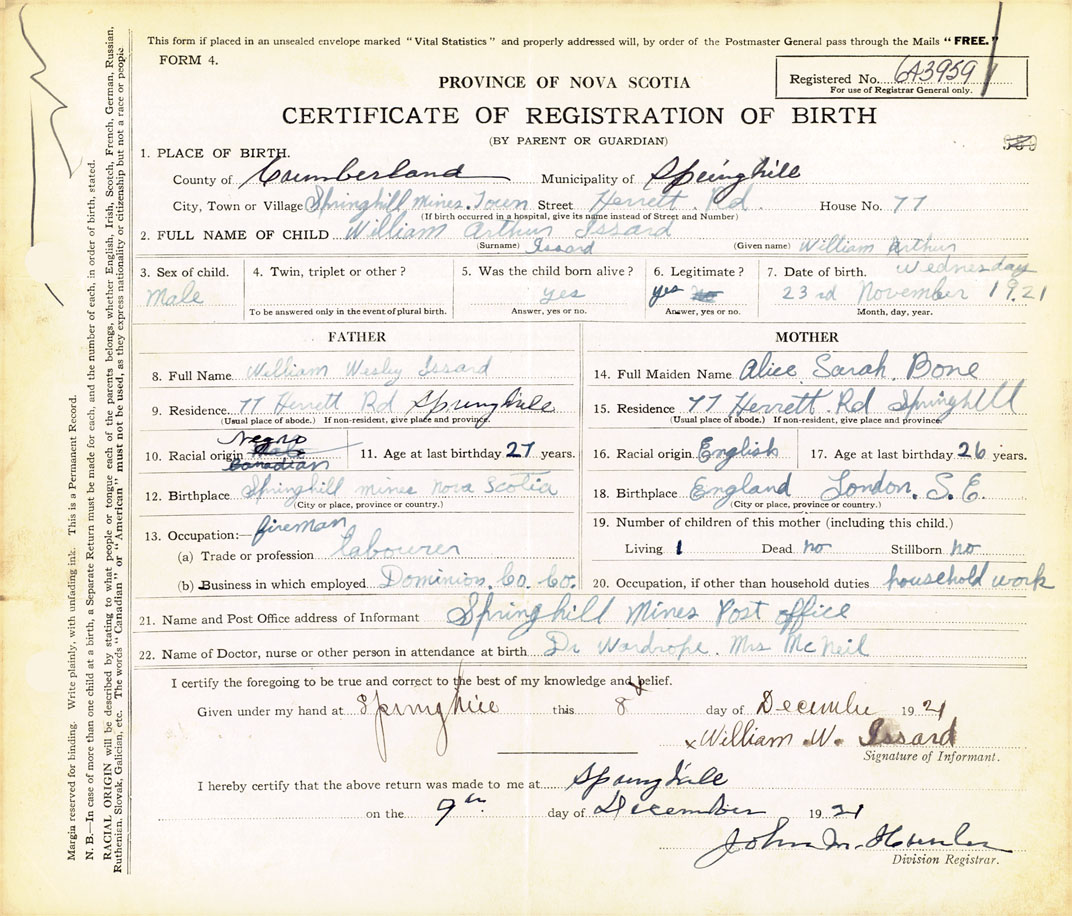 This form if placed in an unsealed envelope marked "Vital Statistics" and properly addressed will, by order of the Postmaster General pass through the Mails "FREE."
FORM 4.
Registered No. 6A3959
For use of Registrar General only.
PROVINCE OF NOVA SCOTIA
CERTIFICATE OF REGISTRATION OF BIRTH
(BY PARENT OR GUARDIAN)
1. PLACE OF BIRTH.
County of Cumberland Municipality of Springhill
City, Town or Village Springhill Mines. Town Street Herrett Rd. House No. 77
(If birth occurred in a hospital, give its name instead of Street and Number)
2. FULL NAME OF CHILD William Arthur Issard
(Surname) Issard (Given name) William Arthur
3. Sex of child. Male
4. Twin, triplet or other?
To be answered only in the event of plural birth.
5. Was the child born alive? yes
Answer, yes or no.
6. Legitimate? yes
Answer, yes or no.
7. Date of birth. Wednesday
23rd November 1921
Month, day, year.
FATHER
8. Full Name William Wesley Issard
9. Residence 77 Herrett Rd Springhill
(Usual place of abode.) If non-resident, give place and province.
10. Racial origin Negro
Canadian
11. Age at last birthday 27 years.
12. Birthplace Springhill mines Nova Scotia
(City or place, province or country.)
13. Occupation:— fireman
(a) Trade or profession labourer
(b) Business in which employed Dominion. Co. Co.
MOTHER
14. Full Maiden Name Alice Sarah Bone
15. Residence 77 Herrett Rd Springhill
(Usual place of abode.) If non-resident, give place and province.
16. Racial origin English 17. Age at last birthday 26 years.
18. Birthplace England London. S. E.
(City or place, province or country.)
19. Number of children of this mother (including this child.)
Living 1 Dead no Stillborn no
20. Occupation, if other than household duties household work
21. Name and Post Office address of Informant Springhill Mines Post office
22. Name of Doctor, nurse or other person in attendance at birth Dr Wardrope. Mrs McNeil
I certify the foregoing to be true and correct to the best of my knowledge and belief.
Given under my hand at Springhill this 8 day of December 1921
x William W. Issard
Signature of Informant.
I hereby certify that the above return was made to me at Springhill
on the 9th day of December 1921
John M.
Division Registrar.
Margin reserved for binding. Write plainly, with unfading ink. This is a Permanent Record.
N. B.—In case of more than one child at a birth, a Separate Return must be made for each, and the number of each, in order of birth, stated.
RACIAL ORIGIN will be described by stating to what people or tongue each of the parents belongs, whether English, Irish, Scotch, French, German, Russian,
Ruthenian, Slovak, Galician, etc. The words "Canadian" or "American" must not be used, as they express nationality or citizenship but not a race or people